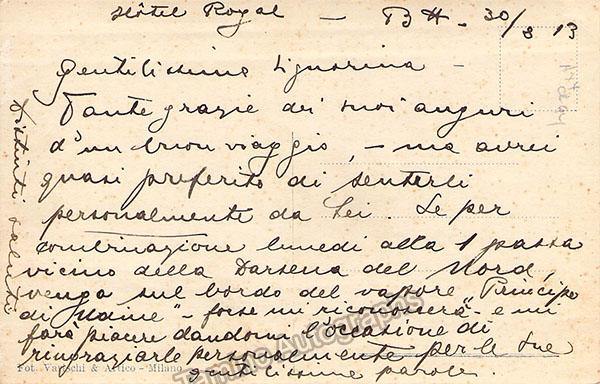 Hôtel Royal – Bs As. 30/8 13
Gentilissima Signorina –
Tante grazie dei suoi auguri
d'un buon viaggio, – ma avrei
quasi preferito di sentirli
personalmente da Lei. Se per
combinazione lunedì alla 1 passa
vicino della Darsena del Nord,
venga sul bordo del vapore "Principe
di Udine" – forse mi riconoscerà – e mi
farà piacere dandomi l'occasione di
ringraziarle personalmente per le sue
gentilissime parole.
Distinti saluti
Fot. Varischi & Artico - Milano
Tamino Autographs